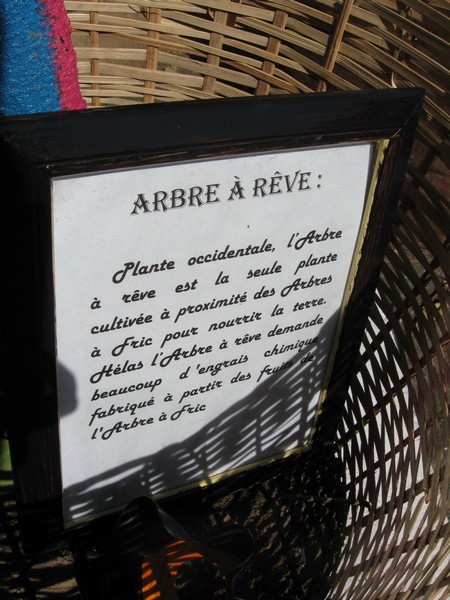 ARBRE À RÊVE :
Plante occidentale, l'Arbre
à rêve est la seule plante
cultivée à proximité des Arbres
à Fric pour nourrir la terre.
Hélas l'Arbre à rêve demande
beaucoup d'engrais chimique
fabriqué à partir des fruits de
l'Arbre à Fric